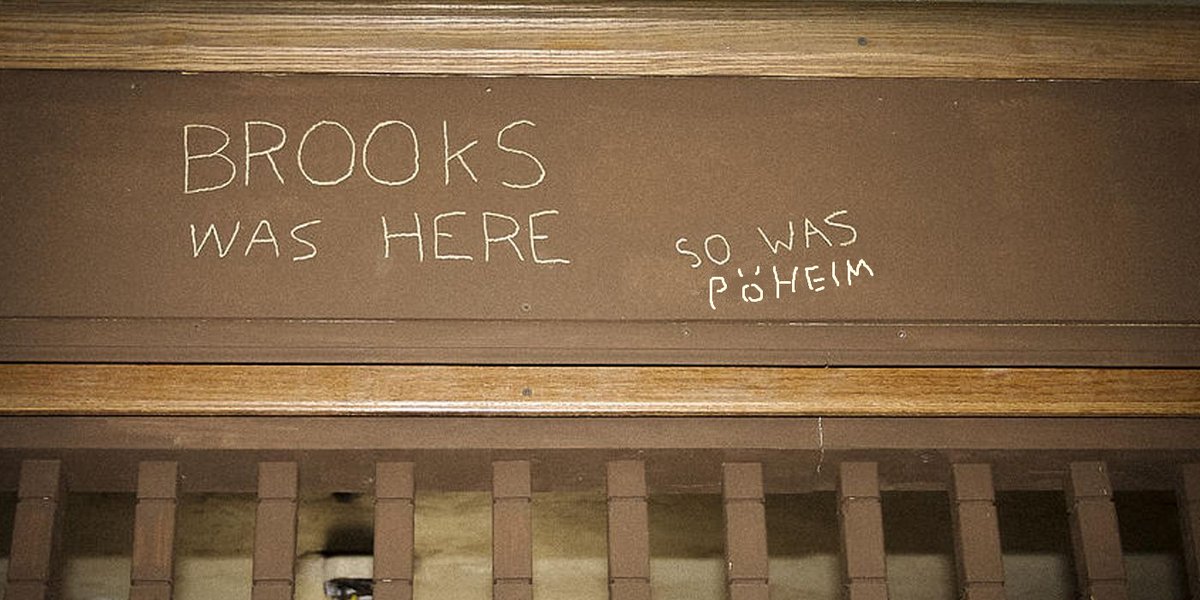 BROOKS
WAS HERE
SO WAS
PÖHEIM